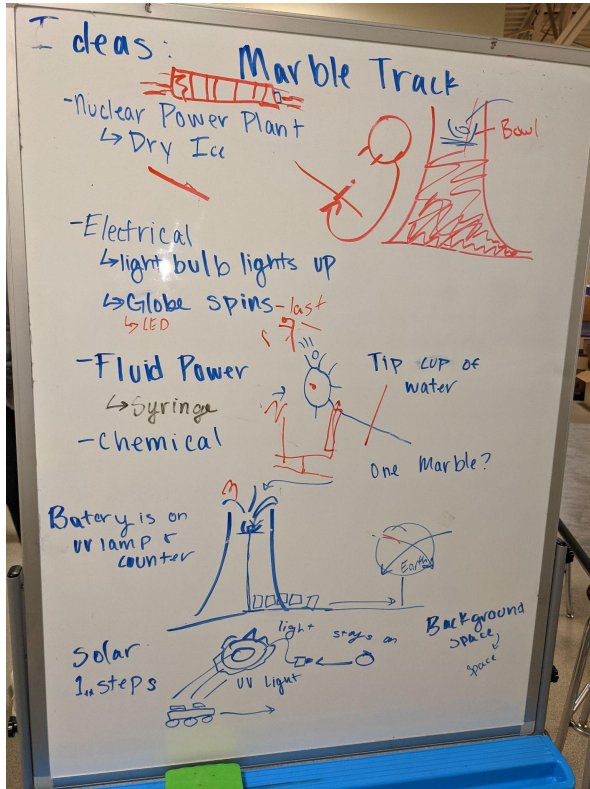 Ideas:
Marble Track
-Nuclear Power Plant
↳Dry Ice
Bowl
-Electrical
↳light bulb lights up
↳Globe spins-last
↳LED
-Fluid Power
↳Syringe
-Chemical
Tip cup of
water
One Marble?
Batery is on
UV lamp &
counter
Earth
Solar
1.. steps
light stays on
UV Light
Background
space
space